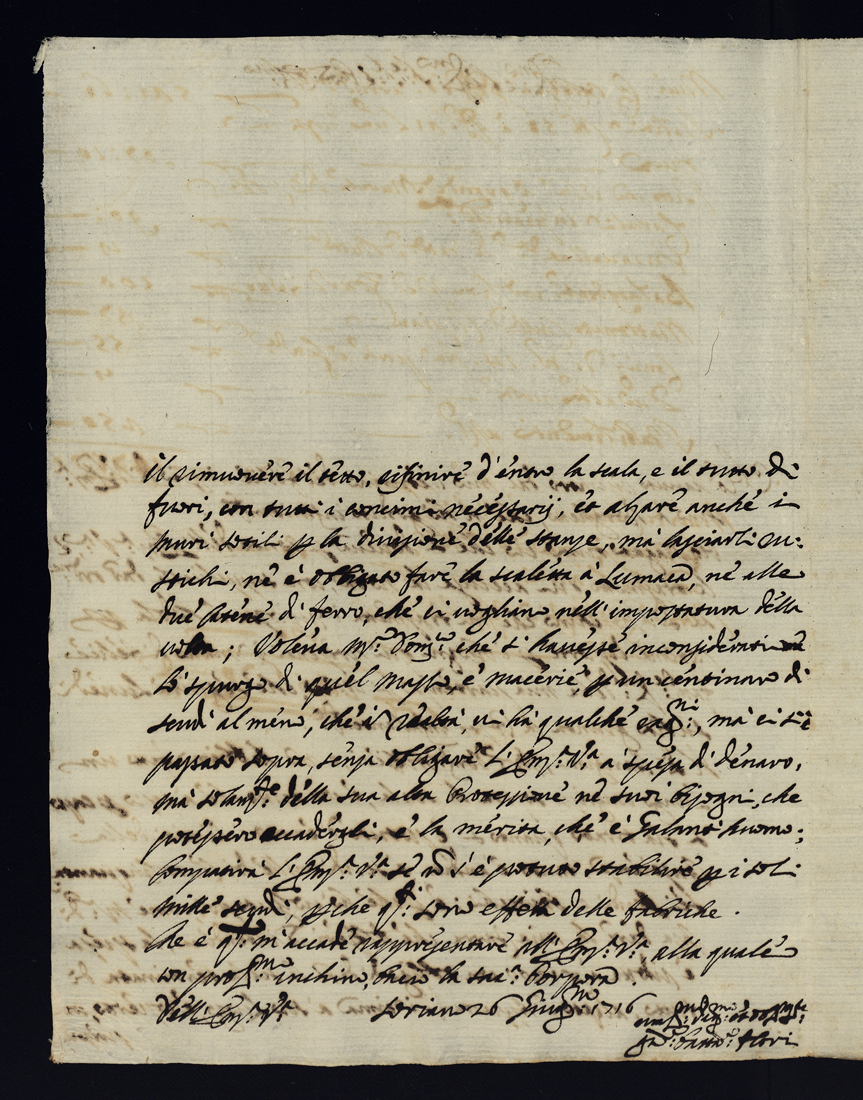 il rimuovere il tetto, rifinire d'entro la scala, e il tutto di
fuori, con tutti i concimi necessarij, et alzare anche i
muri sotili p la divisione delle stanze, mà lasciarli ru-
stichi, nè è obligato fare la scaletta à Lumaca, nè alle
due Catene di ferro, che ci voglhino nell'impostatura della
volta; Voleva Mr: Domco: che si havesse in considerati
lo spurgo di quel Masso, e macerie p un centinaro di
scudi al meno, che in realtà, vi hà qualche ragni:, mà ci si è
passato sopra, senza obligare L'Emza: Va: a spesa di denaro,
mà solamte: della sua alta Protezzione nè suoi bisogni, che
potessero accadergli, e la merita, che è Galant'huomo;
Compatirà L'Emza: Va: se nò s'è potuto stabilire p i soli
mille scudi, pche qsti: sono effetti delle fabriche.
Che è qto: m'accade rappresentare all'Emza: Va:, alla quale
con profma: inchino, bacio la sacra: Porpora.
Dell'Emza: Va: Soriano 26 Giugno: 1716